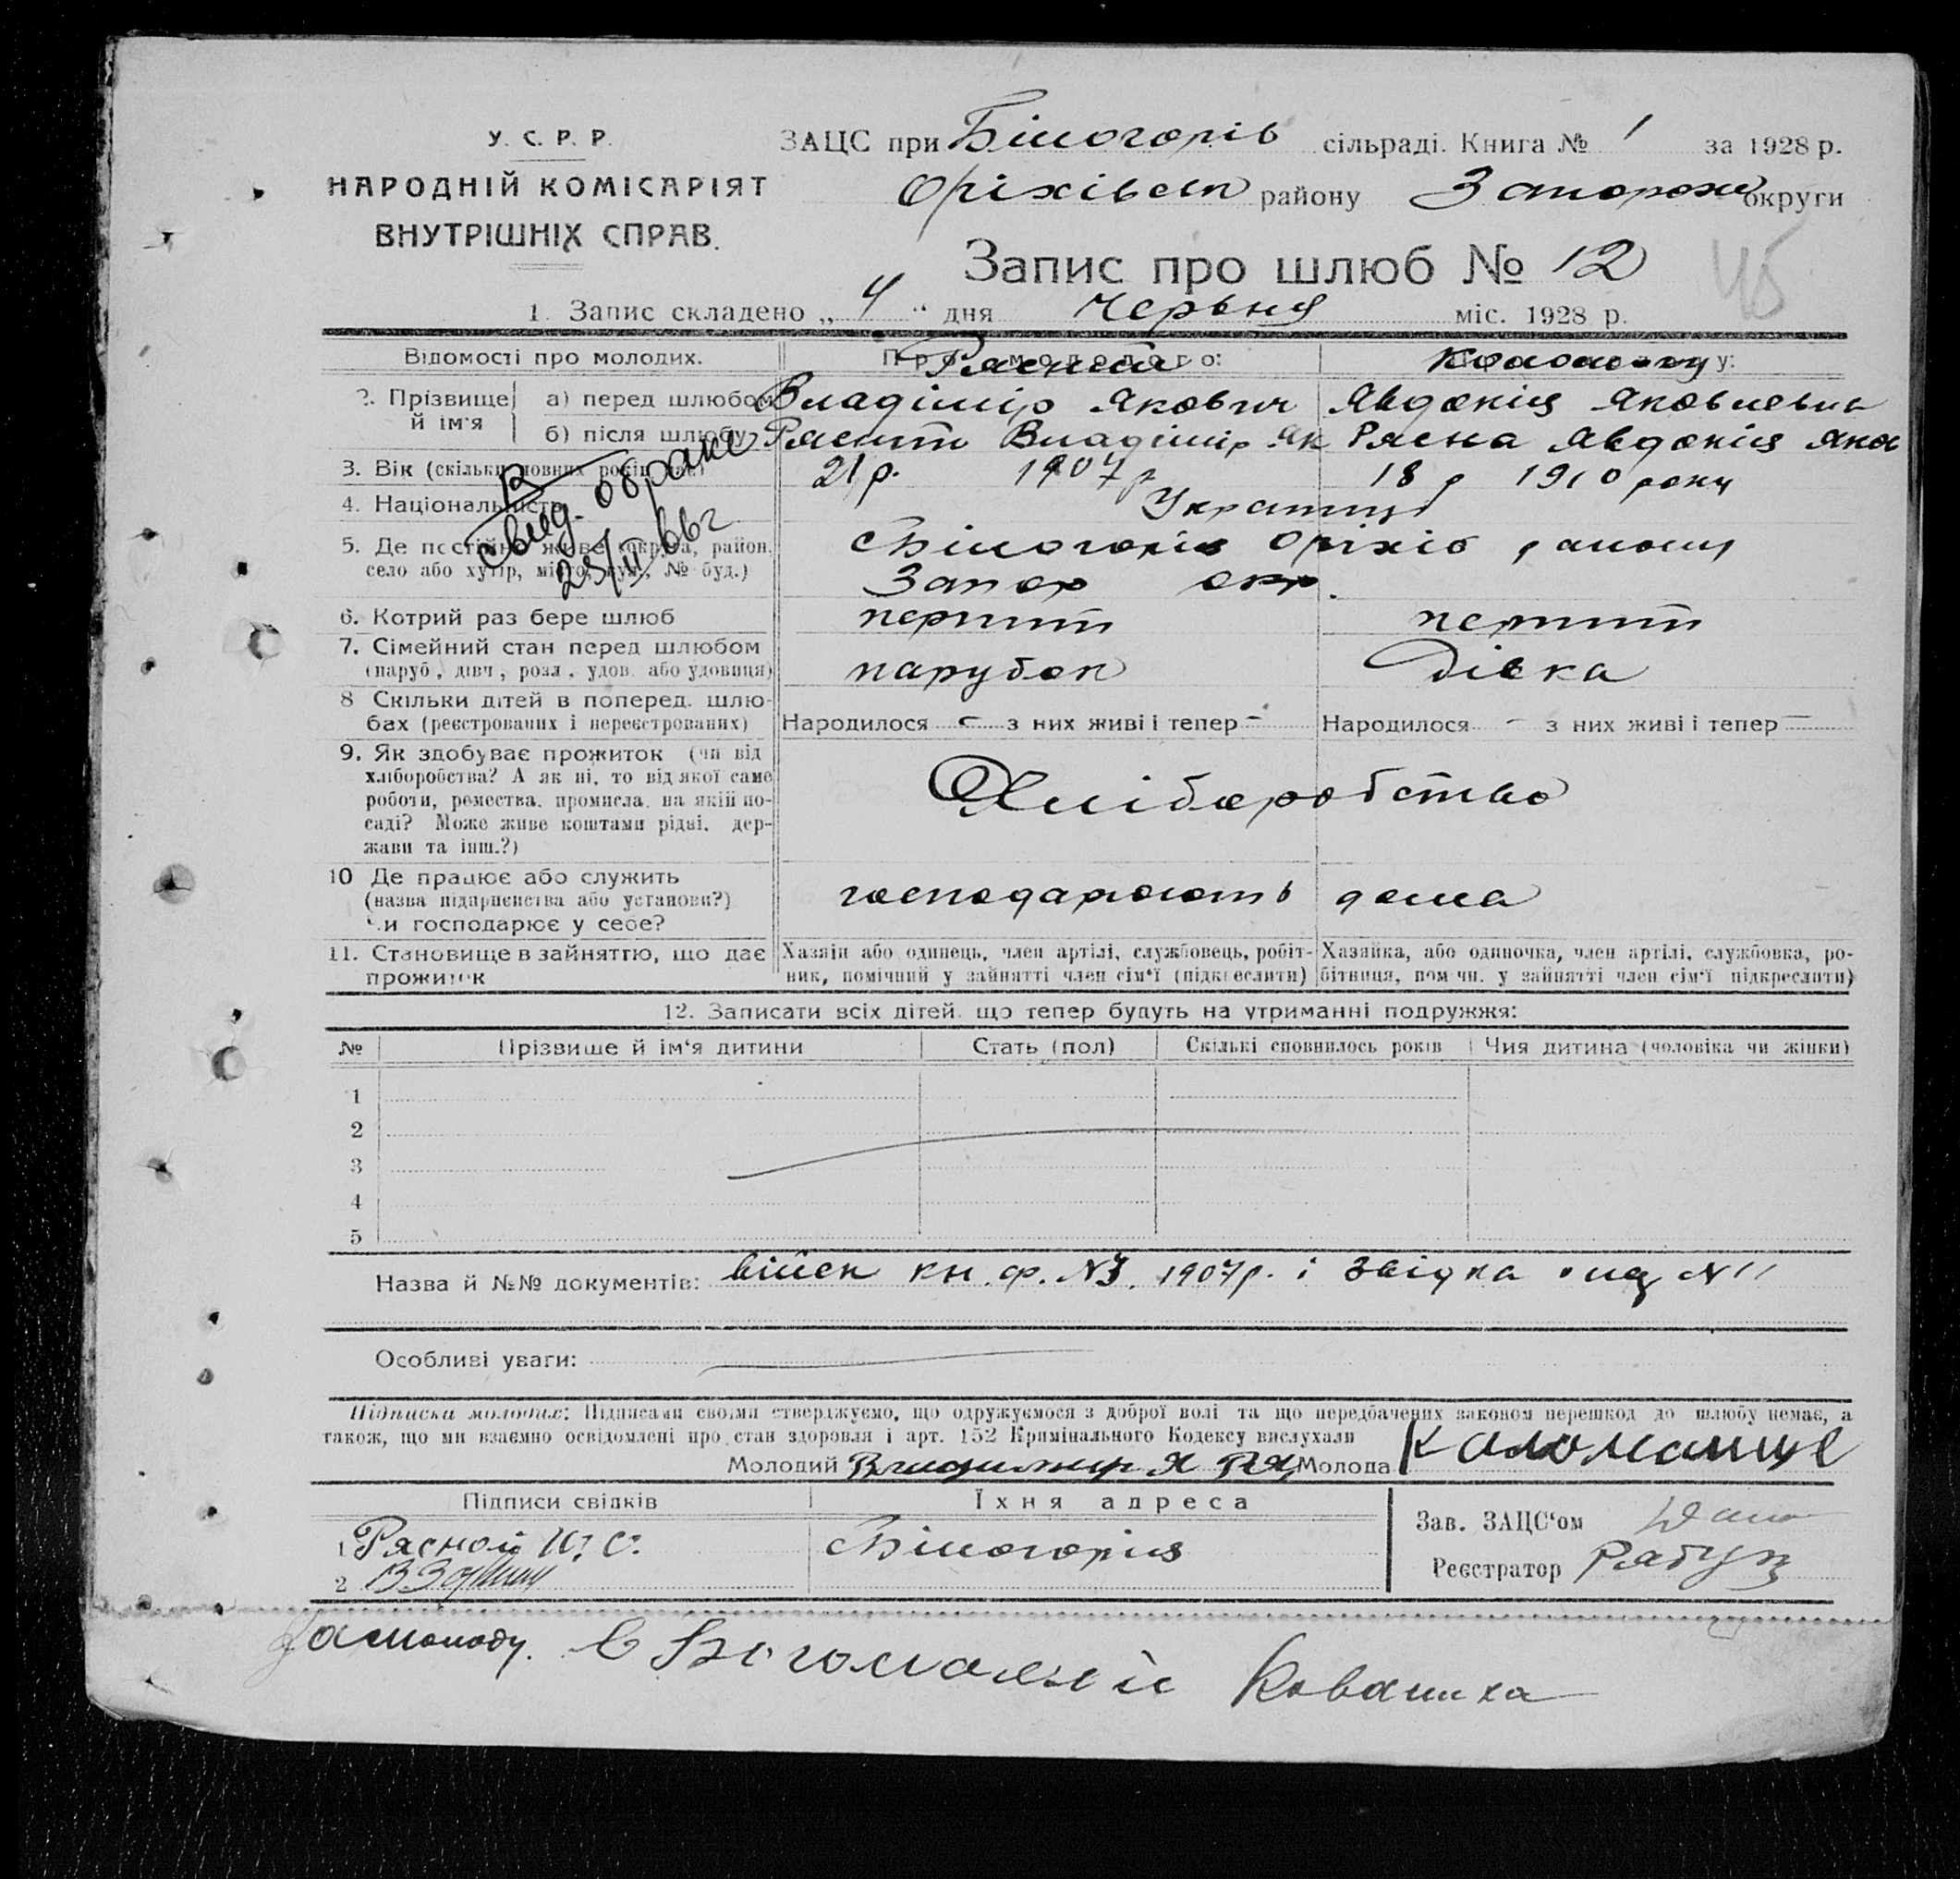 У. С. Р. Р.
НАРОДНІЙ КОМІСАРІЯТ
ВНУТРІШНІХ СПРАВ.
ЗАЦС при Білогорів сільраді. Книга № 1 за 1928 р.
Оріхівськ району Запорож округи
Запис про шлюб № 12
45
1. Запис складено „ 4 “ дня червня міс. 1928 р.
Відомості про молодих.
2. Прізвище й ім'я
а) перед шлюбом
Владімір Якович
Явдокія Яковлевна
б) після шлюбу
Рясний Владімір Як
Рясна Явдокія Яков
3. Вік (скільки повних років має)
21 р. 1907 р
18 р 1910 року
4. Національність
Українці
5. Де постійно живе (округа, район, село або хутір, місто, вул., № буд.)
Білогорів Оріхів району
Запор окр.
В свид. о браке
23/II 66 г
6. Котрий раз бере шлюб
перший
перший
7. Сімейний стан перед шлюбом
(паруб., дівч., розл., удов. або удовиця)
парубок
Дівка
8 Скільки дітей в поперед. шлюбах (реєстрованих і нереєстрованих)
Народилося - з них живі і тепер -
Народилося - з них живі і тепер -
9. Як здобуває прожиток (чи від
хліборобства? А як ні, то від якої саме
роботи, ремества, промисла, на якій по-
саді? Може живе коштами рідні, дер-
жави та інш.?)
Хліборобство
10 Де працює або служить
(назва підприємства або установи?)
Чи господарює у себе?
господарюють дома
11. Становище в зайняттю, що дає
прожиток
Хазяїн або одинець, член артілі, службовець, робіт-
ник, помічний у зайнятті член сім'ї (підкреслити)
Хазяйка, або одиночка, член артілі, службовка, ро-
бітниця, помічн. у зайнятті член сім'ї підкреслити)
12. Записати всіх дітей, що тепер будуть на утриманні подружжя:
№ Прізвище й ім'я дитини Стать (пол) Скількі сповнилось років Чия дитина (чоловіка чи жінки)
1
2
3
4
5
Назва й №№ документів: військ кн. ф. №3. 1907 р. і звідка № 11
Особливі уваги:
Підписка молодих: Підписами своїми стверджуємо, що одружуємося з доброї волі та що передбачених законом перешкод до шлюбу немає, а
також, що ми взаємно освідомлені про стан здоровля і арт. 152 Кримінального Кодексу вислухали
Молодий Владимир Я Ря Молода
Підписи свідків Їхня адреса
1 Рясной И. С. Білогорія
2
Зав. ЗАЦС'ом
Реєстратор